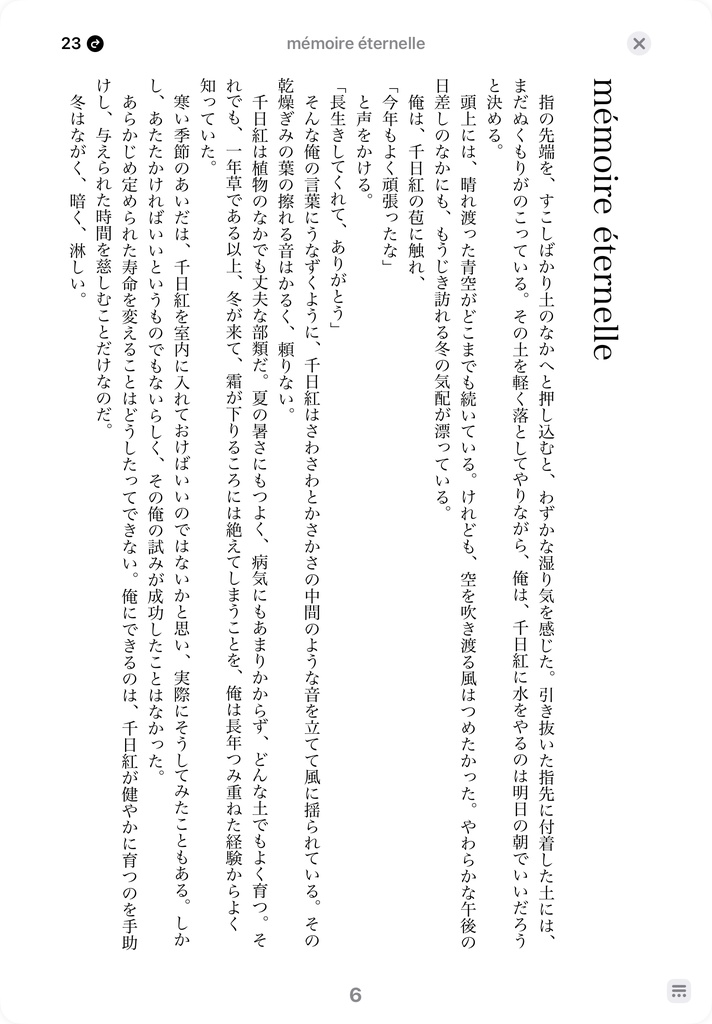 23
mémoire éternelle
mémoire éternelle
指の先端を、すこしばかり土のなかへと押し込むと、わずかな湿り気を感じた。引き抜いた指先に付着した土には、
まだぬくもりがのこっている。その土を軽く落としてやりながら、俺は、千日紅に水をやるのは明日の朝でいいだろう
と決める。
頭上には、晴れ渡った青空がどこまでも続いている。けれども、空を吹き渡る風はつめたかった。やわらかな午後の
日差しのなかにも、もうじき訪れる冬の気配が漂っている。
俺は、千日紅の苞に触れ、
「今年もよく頑張ったな」
と声をかける。
「長生きしてくれて、ありがとう」
そんな俺の言葉にうなずくように、千日紅はさわさわとかさかさの中間のような音を立てて風に揺られている。その
乾燥ぎみの葉の擦れる音はかるく、頼りない。
千日紅は植物のなかでも丈夫な部類だ。夏の暑さにもつよく、病気にもあまりかからず、どんな土でもよく育つ。そ
れでも、一年草である以上、冬が来て、霜が下りるころには絶えてしまうことを、俺は長年つみ重ねた経験からよく
知っていた。
寒い季節のあいだは、千日紅を室内に入れておけばいいのではないかと思い、実際にそうしてみたこともある。しか
し、あたたかければいいというものでもないらしく、その俺の試みが成功したことはなかった。
あらかじめ定められた寿命を変えることはどうしたってできない。俺にできるのは、千日紅が健やかに育つのを手助
けし、与えられた時間を慈しむことだけなのだ。
冬はながく、暗く、淋しい。
6